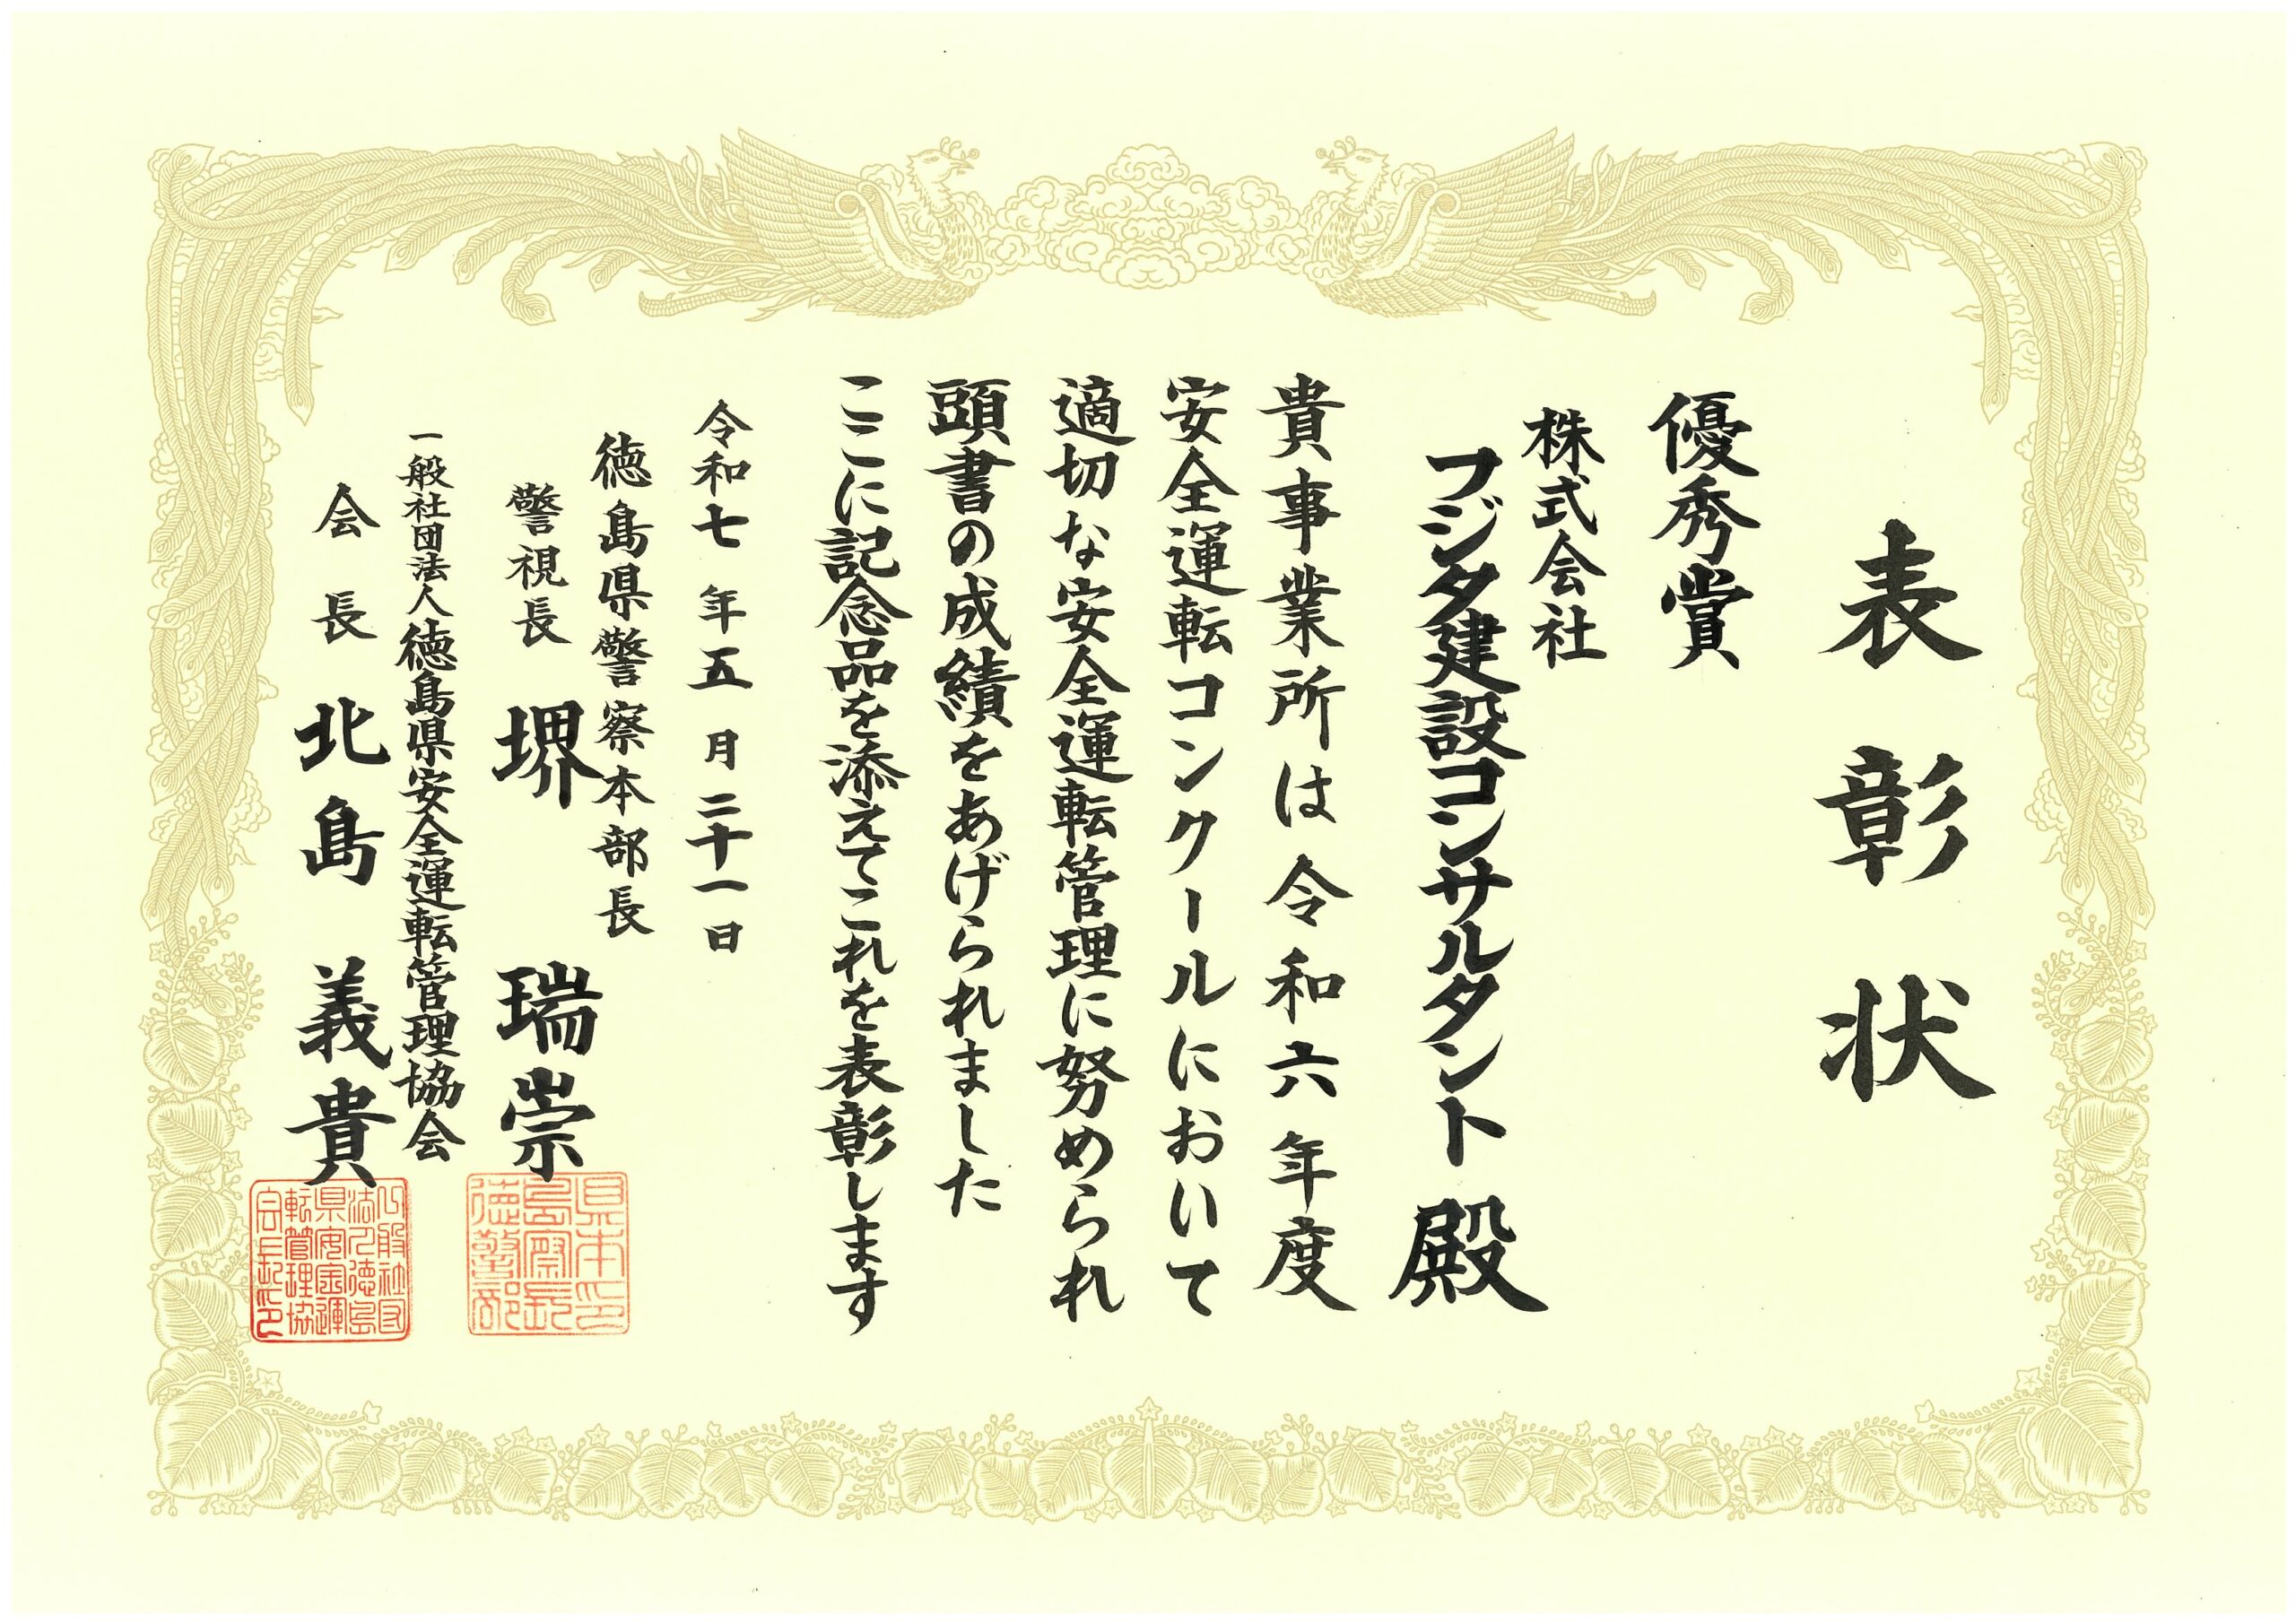 表彰状
優秀賞
株式会社
フジタ建設コンサルタント 殿
貴事業所は令和六年度
安全運転コンクールにおいて
適切な安全運転管理に努められ
頭書の成績をあげられました
ここに記念品を添えてこれを表彰します
令和七年五月二十一日
徳島県警察本部長
警視長 堺 瑞崇
一般社団法人徳島県安全運転管理協会
会長 北島 義貴